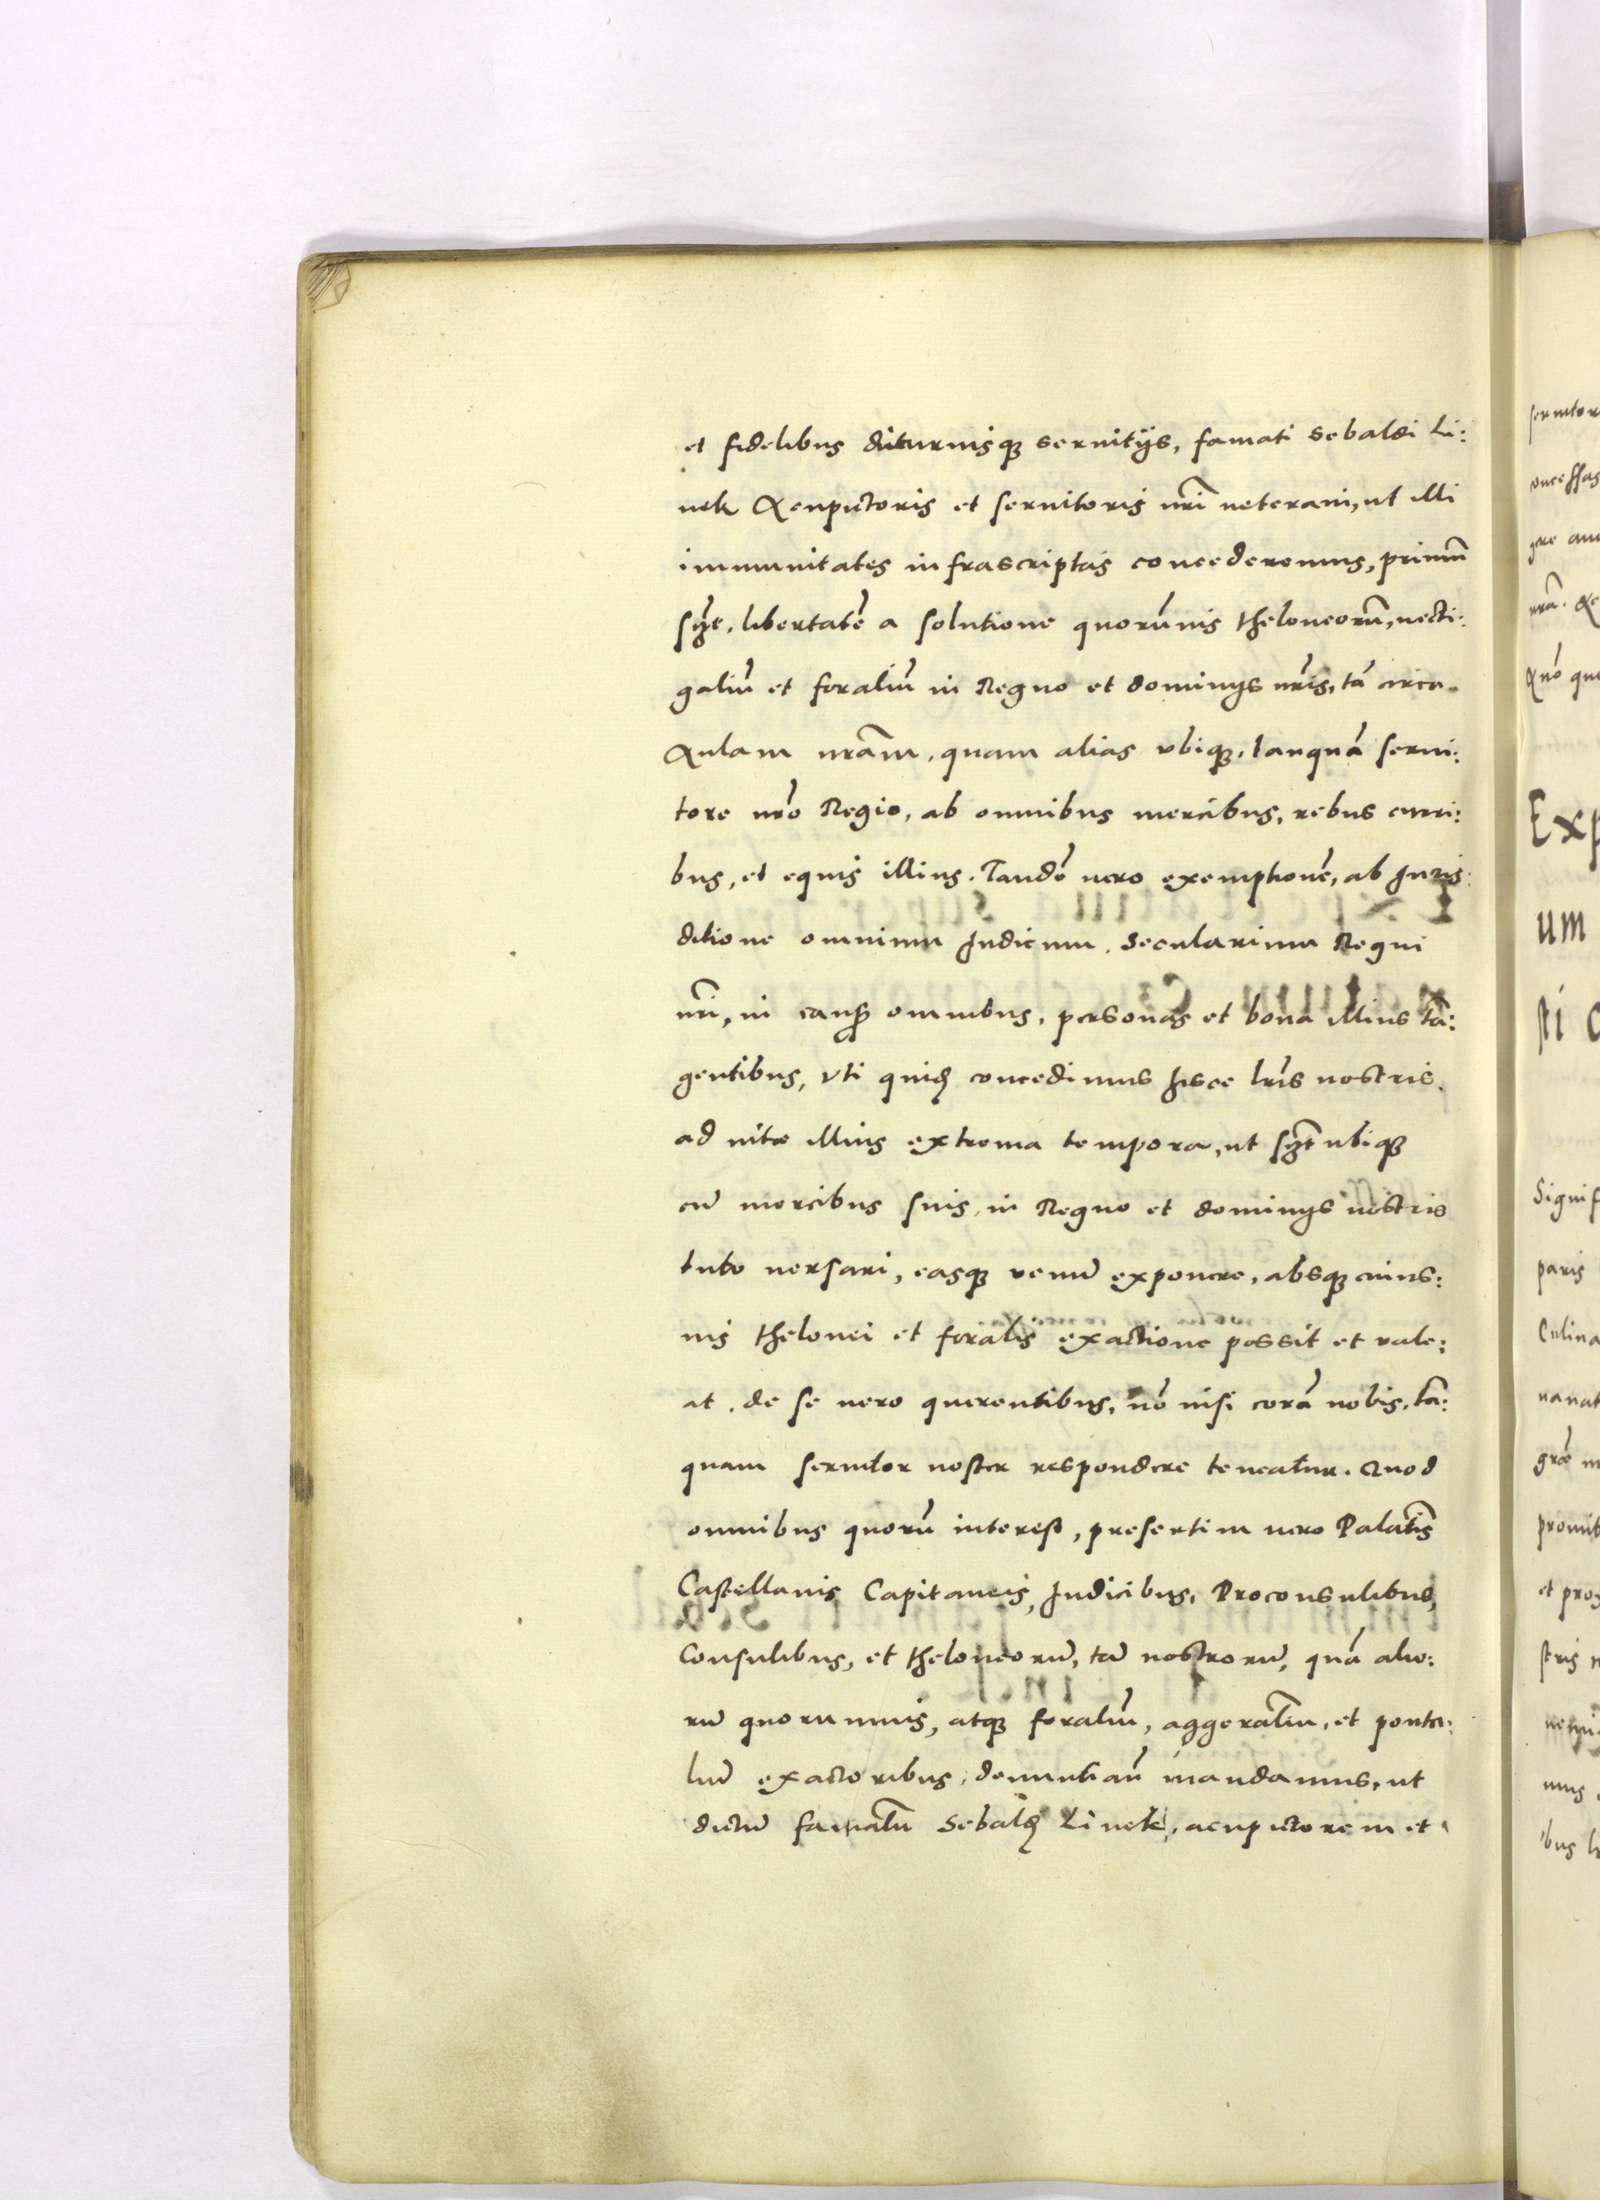 et fidelibus diuturnisq; seruitijs, famati Sebaldi Li:
nck Acupictoris et seruitoris nri ueterani, ut illi
immunitates infrascriptas concederemus, primũ
libertatẽ a solutione quorũuis theloneorũ, uecti:
galiũ et foraliũ in Regno et dominijs nris, tã circa
Aulam nram, quam alias vbiq;, tanquã serui:
tore nro Regio, ab omnibus mercibus, rebus curri:
bus, et equis illius. Tandẽ uero exemptionẽ, ab Juris:
ditione omnium Judicum Secularium Regni
nri, in causis omnibus, personas et bona illius tã:
gentibus, vti quidem concedimus hisce lris nostris
ad uitæ illius extrema tempora, ut ubiq;
cũ mercibus suis, in Regno et dominijs nostris
tuto uersari, easq; venũ exponere, absq; cuius:
uis thelonei et foralis exactione possit et vale:
at. de se uero querentibus, nõ nisi corã nobis, tã:
quam seruitor noster respondere teneatur. Quod
omnibus quorũ interest, presertim uero Palatis
Castellanis Capitaneis, Judicibus, Proconsulibus,
Consulibus, et theloneorũ, tã nostrorũ, quã alio:
rũ quorumuis, atq; foraliũ, aggeraliũ, et ponta:
liũ exactoribus, mandamus, ut
dictũ famatũ Sebaldum Linck, acupictorem et
seruitor
Exp
um
sti C
Signif
paris
Culina
promit